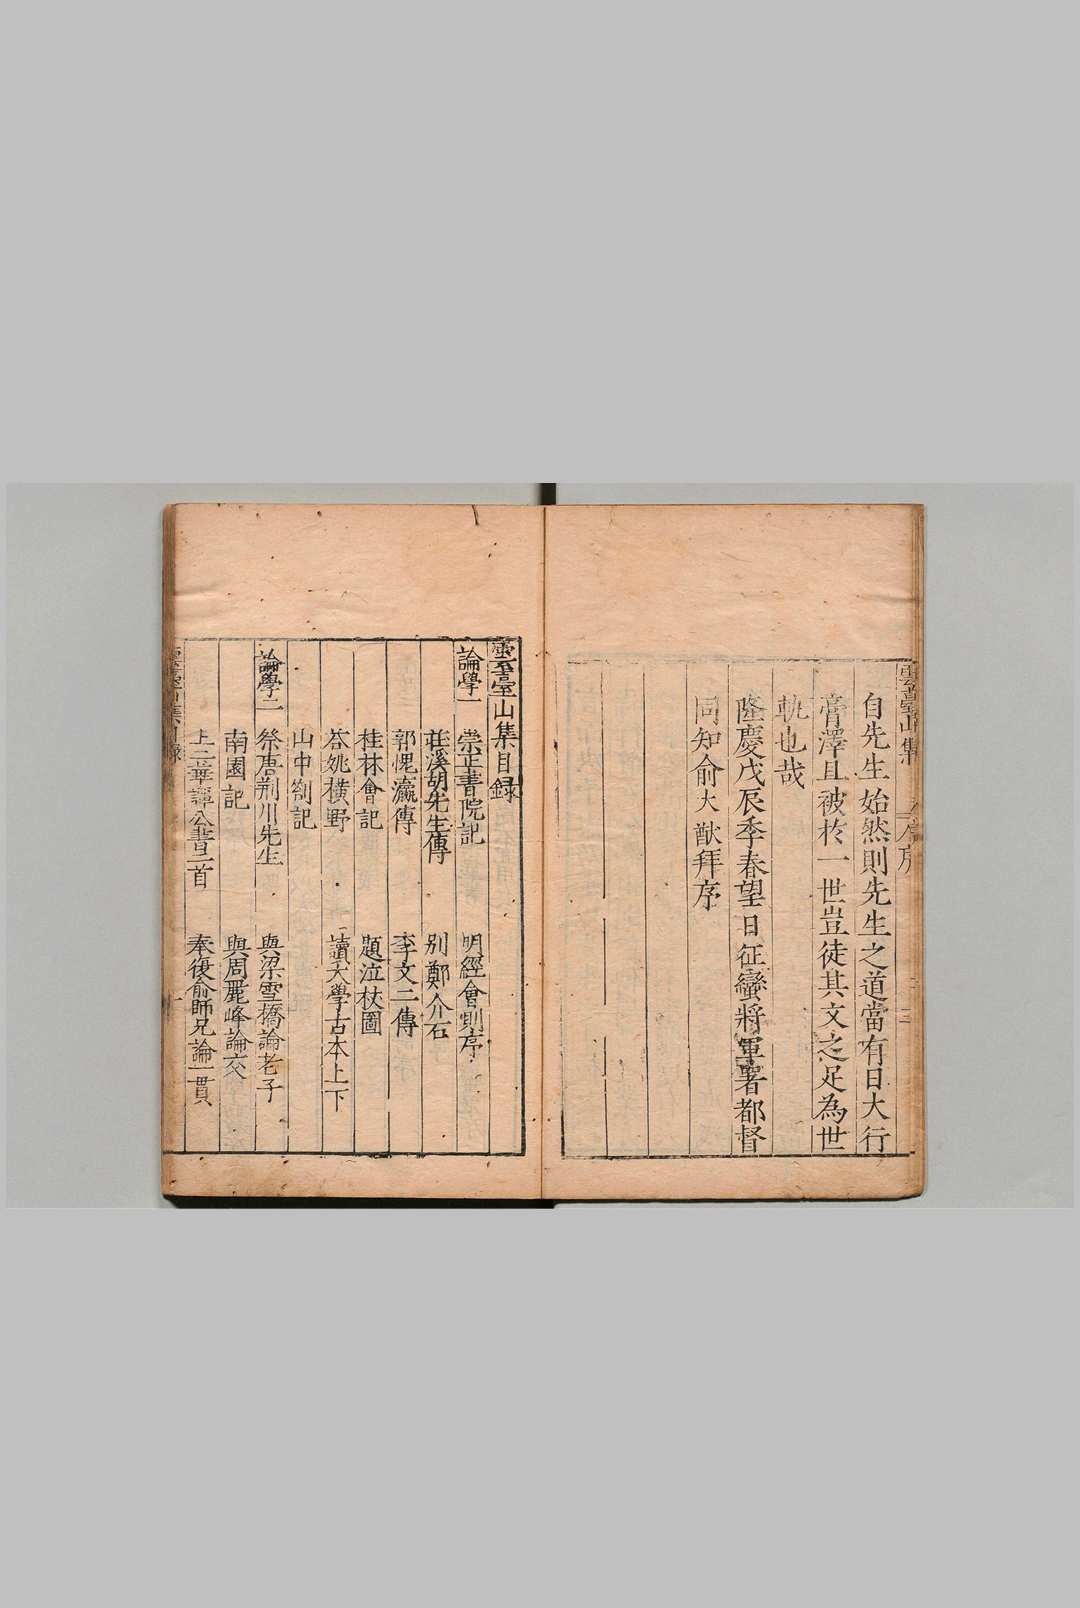 雲臺山集
自先生始然則先生之道當有日大行
膏澤且被於一世豈徒其文之足為世
軌也哉
隆慶戊辰季春望日征蠻將軍署都督
同知俞大猷拜序
靈臺山集目録
論學一
崇正書院記 明經會則序
莊溪胡先生傳 別鄭介石
郭愧瀛傳 李文二傳
桂林會記 題泣杖圖
荅姚橫野 讀大學古本上下
山中劄記
論學二
祭唐荊川先生 與梁雪橋論老子
南園記 與周麗峰論交
上二華譚公書二首 奉復俞師兄論一貫